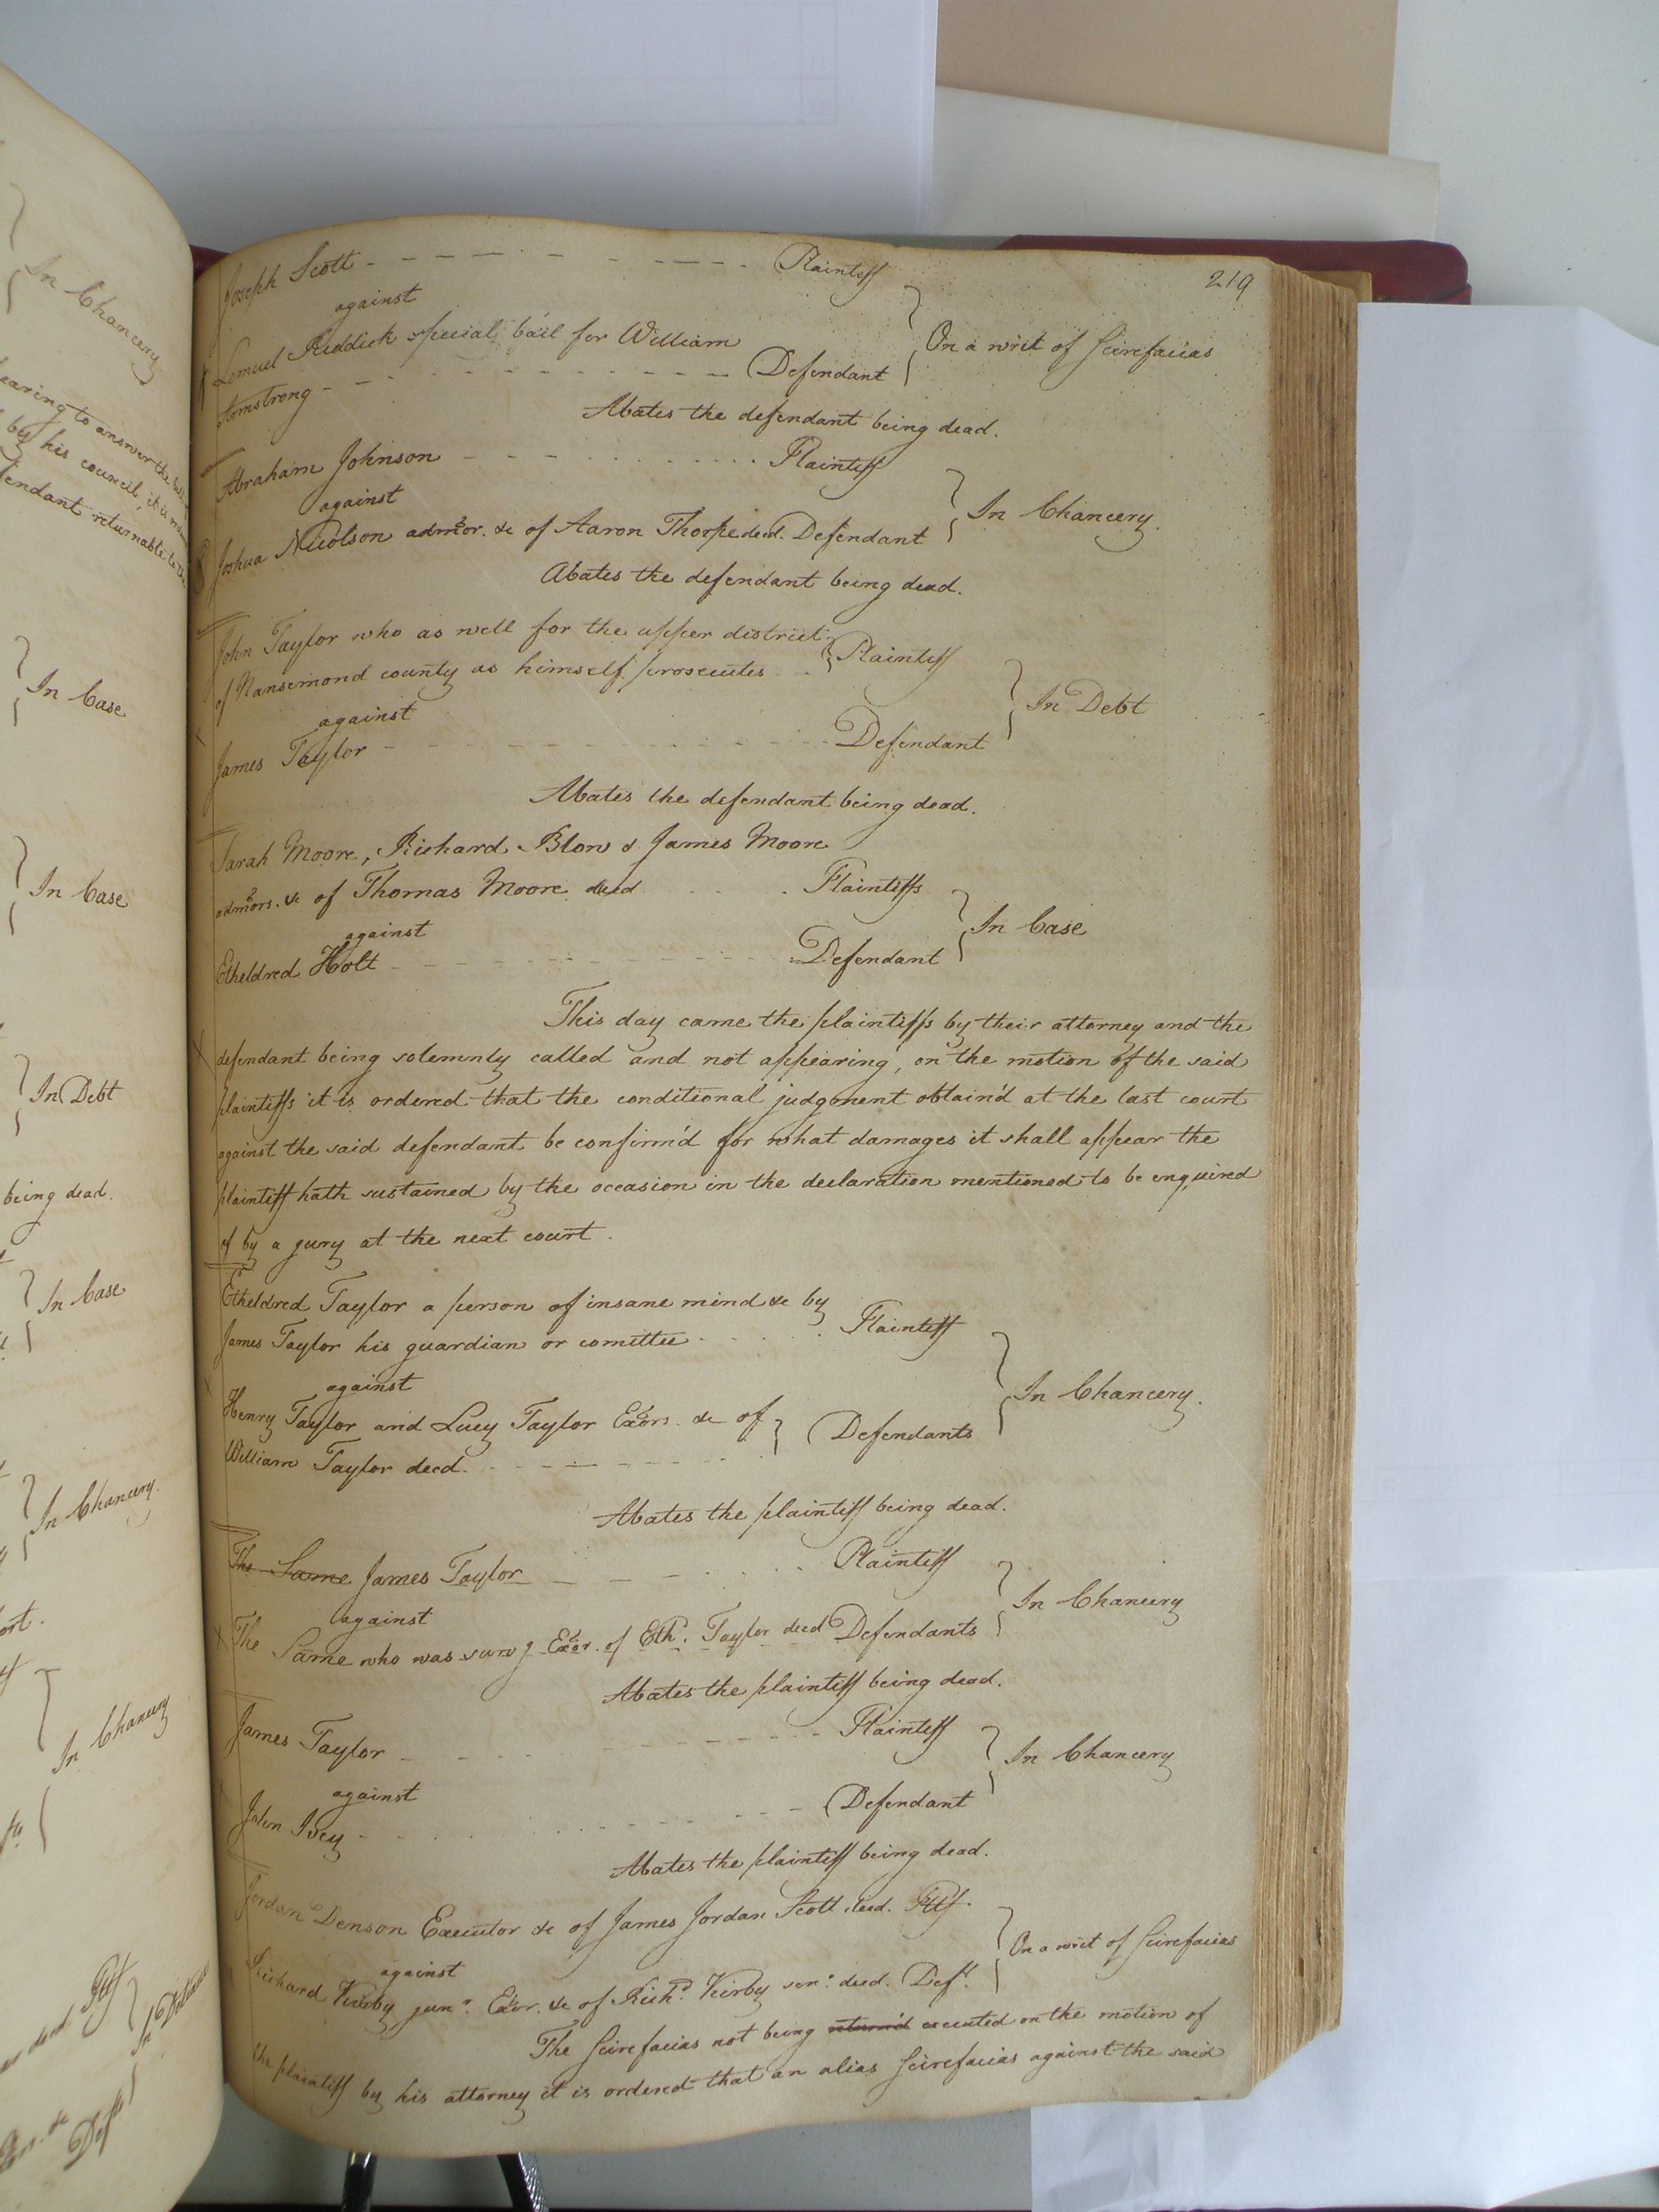 In Chancery
earing to answer the
by his council, it is
fendant returnable to the
In Case
In Case
In Debt
being dead.
In Case
In Chancery.
In Chancery
Pltf
219
Joseph Scott Plaintiff
against
Lemuel Riddick special bail for William
Armstrong Defendant
On a writ of Scirefacias
Abates the defendant being dead.
Abraham Johnson Plaintiff
against
In Chancery.
Joshua Nicolson admor. &c of Aaron Thorpe decd. Defendant
Abates the defendant being dead.
John Taylor who as well for the upper district
of Nansemond county as himself prosecutes Plaintiff
against
In Debt
James Taylor Defendant
Abates the defendant being dead.
Sarah Moore, Richard Blow & James Moore
admors. &c of Thomas Moore decd Plaintiffs
against
In Case
Etheldred Holt Defendant
This day came the plaintiffs by their attorney and the
defendant being solemnly called and not appearing, on the motion of the said
plaintiffs it is ordered that the conditional judgment obtain'd at the last court
against the said defendant be confirm'd for what damages it shall appear the
plaintiff hath sustained by the occasion in the declaration mentioned to be enquired
of by a jury at the next court.
Etheldred Taylor a person of insane mind &c by
James Taylor his guardian or comittee Plaintiff
against
In Chancery.
Henry Taylor and Lucy Taylor Exors. &c of
William Taylor decd. Defendants
Abates the plaintiff being dead.
The Same James Taylor Plaintiff
against
In Chancery
The Same who was survg. Exor. of Eth. Taylor decd Defendants
Abates the plaintiff being dead.
James Taylor Plaintiff
against
In Chancery
John Ivey Defendant
Abates the plaintiff being dead.
Jordan Denson Executor &c of James Jordan Scott decd. Pltf.
against
On a writ of Scirefacias
Richard Kirby junr. Exor. &c of Richd. Kirby senr. decd. Deft.
The Scirefacias not being return'd executed on the motion of
the plaintiff by his attorney it is ordered that an alias Scirefacias against the said